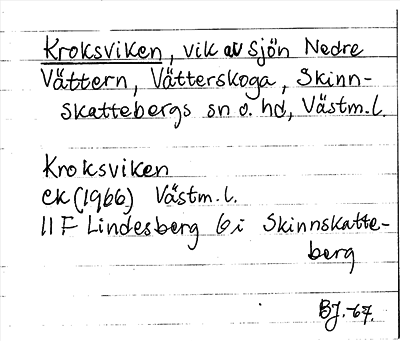 Kroksviken, vik av sjön Nedre
Vättern, Vätterskoga, Skinn-
skattebergs sn o. hd, Västm.l.
Kroksviken
ek (1966) Västm.l.
11 F Lindesberg 6 i Skinnskatte-
berg
BJ.-67.